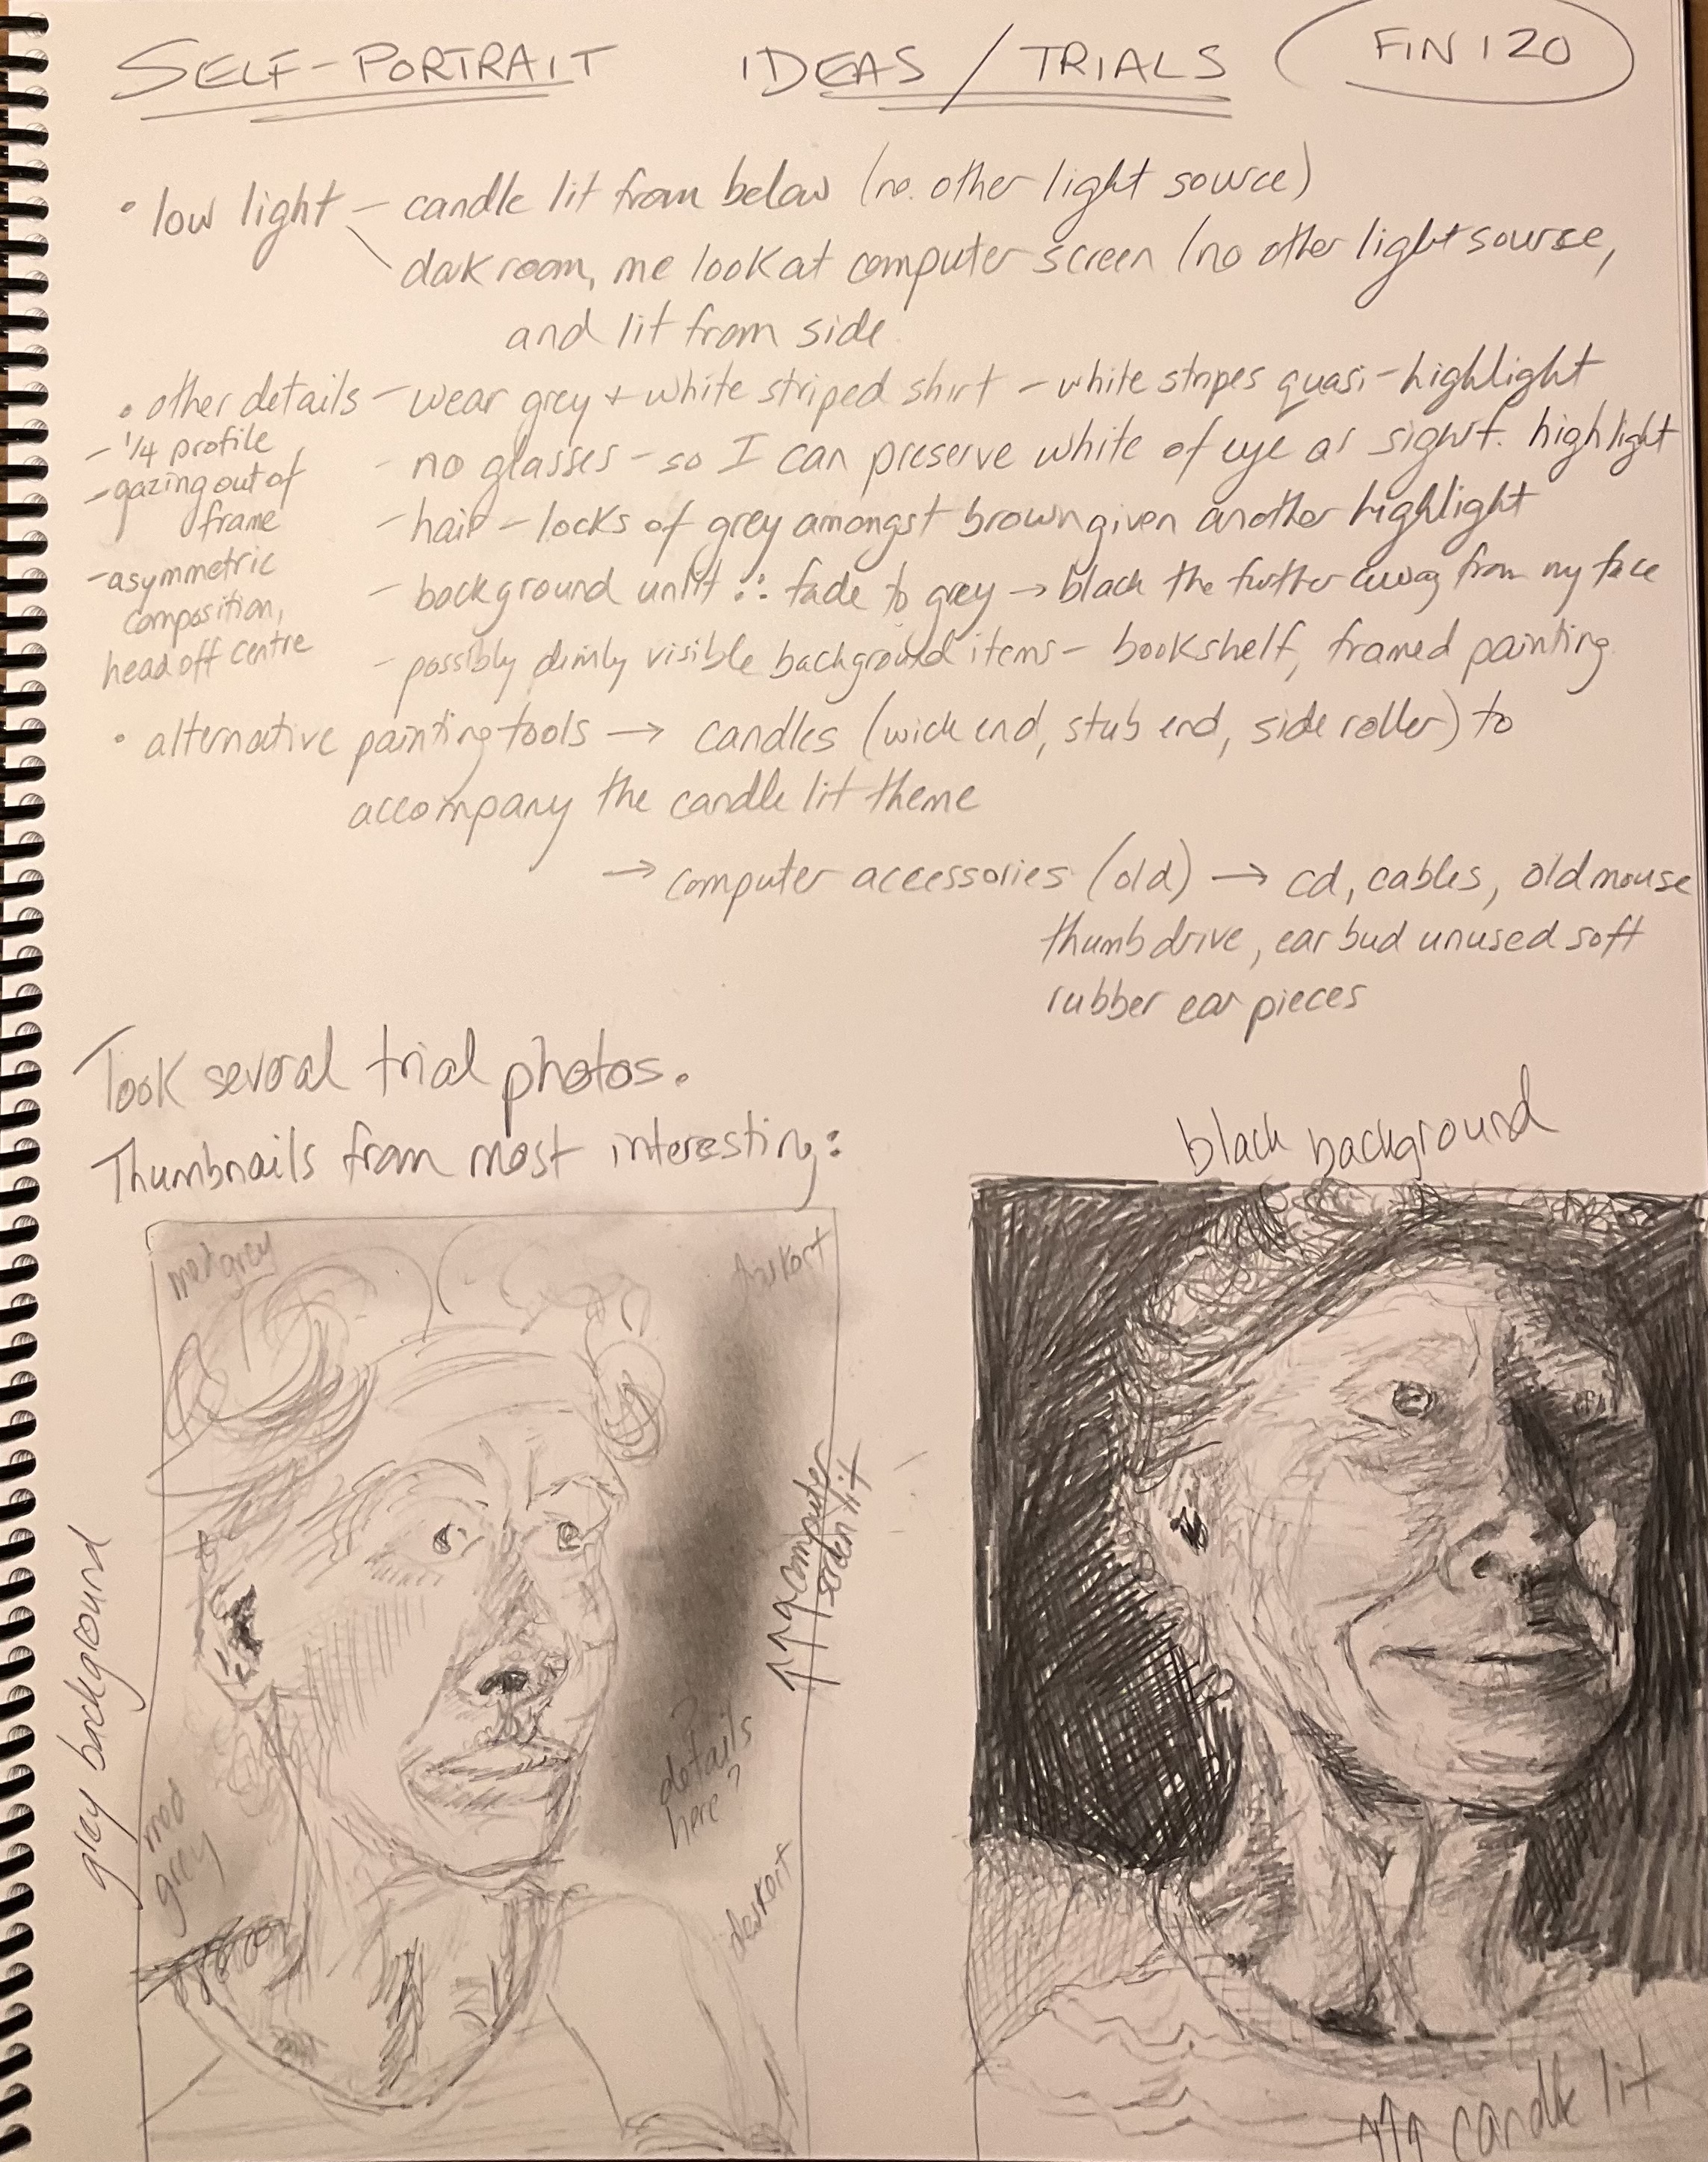 SELF-PORTRAIT IDEAS / TRIALS FIN 120
• low light – candle lit from below (no other light source)
dark room, me look at computer screen (no other light source,
and lit from side
• other details – wear grey + white striped shirt – white stripes quasi-highlight
– 1/4 profile
– gazing out of
frame
– asymmetric
composition,
head off centre
– no glasses – so I can preserve white of eye as signif. highlight
– hair – locks of grey amongst brown given another highlight
– background unlit ∴ fade to grey → black the further away from my face
– possibly dimly visible background items – bookshelf, framed painting
• alternative painting tools → candles (wick end, stub end, side roller) to
accompany the candle lit theme
→ computer accessories (old) → cd, cables, old mouse
thumbdrive, ear bud unused soft
rubber ear pieces
Took several trial photos.
Thumbnails from most interesting:
gray background
med grey
darker
↑↑↑ computer
screen lit
? details
here?
med
grey
darker
black background
↑↑↑ candle lit